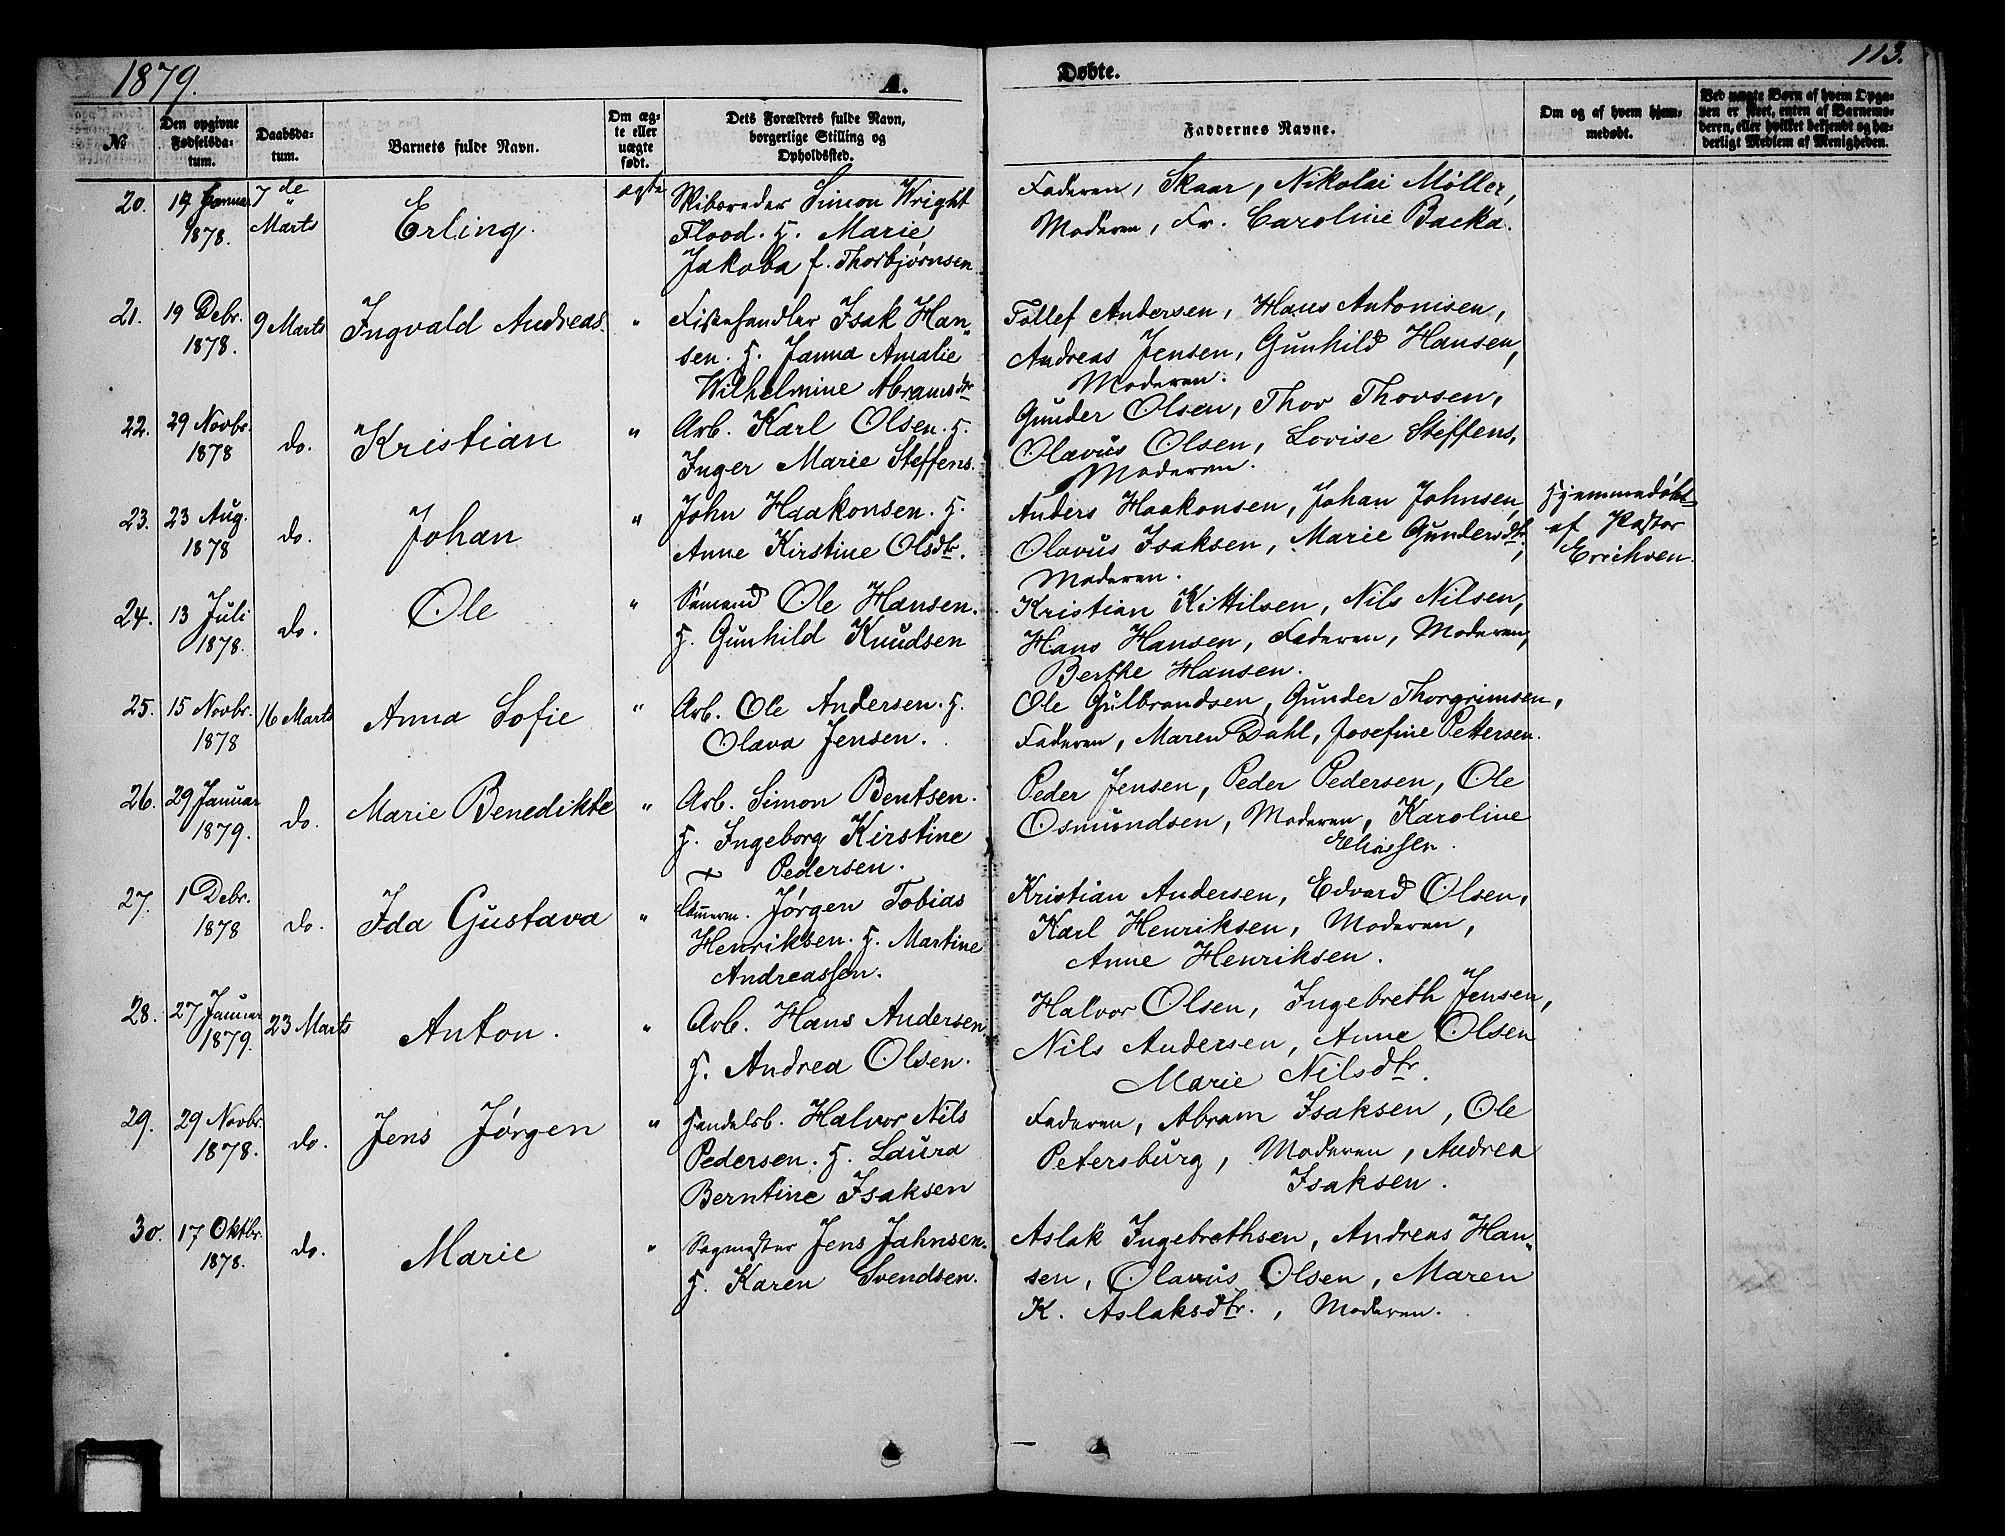 1879.
A.
Døbte.
113.
№
Den opgivne Fødselsdatum.
Daabsdatum.
Barnets fulde Navn.
Om ægte eller uægte født.
Dets Forældres fulde Navn, borgerlige Stilling og Opholdssted.
Faddernes Navne.
Om og af hvem hjemmedøbt.
Ved uægte Børn af hvem Opgaven er skeet, enten af Barnemoderen, eller hvilket bekjendt og hæderligt Medlem af Menigheden.
20. 14 Januar 1878. 7de Marts Erling. ægte
Skibsreder Simon Wright
Flood. H. Marie
Jakoba f. Thorbjørnsen
Faderen, Skaar, Nikolai Møller,
Moderen, Fr. Caroline Backa.
21. 19 Debr. 1878. 9 Marts Ingvald Andreas. "
Fiskehandler Isak Han„
sen. H. Janna Amalie
Wilhelmine Abramsdtr
Tollef Andersen, Hans Antonisen,
Andreas Jensen, Gunhild Hansen,
Moderen.
22. 29 Novbr. 1878 do. Kristian "
Arb. Karl Olsen. H.
Inger Marie Steffens.
Gunder Olsen, Thov Thovsen,
Olavus Olsen, Lovise Steffens,
Moderen.
23. 23 Aug. 1878 do. Johan "
John Haakonsen. H.
Anne Kirstine Olsdtr.
Anders Haakonsen, Johan Johnsen,
Olavus Isaksen, Marie Gundersdtr,
Moderen.
Hjemmedøbt
af Pastor
Erichsen.
24. 13 Juli 1878. do. Ole "
Sømand Ole Hansen.
H. Gunhild Knudsen
Kristian Kittilsen, Nils Nilsen,
Hans Hansen, Faderen, Moderen,
Berthe Hansen.
25. 15 Novbr. 1878 16 Marts Anna Sofie "
Arb. Ole Andersen. H.
Olava Jensen.
Ole Gulbrandsen, Gunder Thorgrimsen,
Faderen, Maren Dahl, Josefine Pettersen.
26. 29 Januar 1879. do. Marie Benedikte "
Arb. Simon Bentsen.
H. Ingeborg Kirstine
Pedersen.
Peder Jensen, Peder Pedersen, Ole
Osmundsen, Moderen, Karoline
Eliassen.
27. 1 Debr. 1878 do. Ida Gustava "
Jørgen Tobias
Henriksen. H. Martine
Andreassen.
Kristian Andersen, Edvard Olsen,
Karl Henriksen, Moderen,
Anne Henriksen.
28. 27 Januar 1879. 23 Marts Anton. "
Arb. Hans Andersen.
H. Andrea Olsen.
Halvor Olsen, Ingebreth Jensen,
Nils Andersen, Anne Olsen
Marie Nilsdtr.
29. 29 Novbr. 1878. do. Jens Jørgen "
Handelsb. Halvor Nils
Pedersen. H. Laura
Berntine Isaksen
Faderen, Abram Isaksen, Ole
Petersburg, Moderen, Andrea
Isaksen.
30. 17 Oktbr. 1878. do. Marie "
Sagmester Jens Jahnsen.
H. Karen Svendsen.
Aslak Ingebrethsen, Andreas Han„
sen, Olavus Olsen, Maren
K. Aslaksdtr., Moderen.